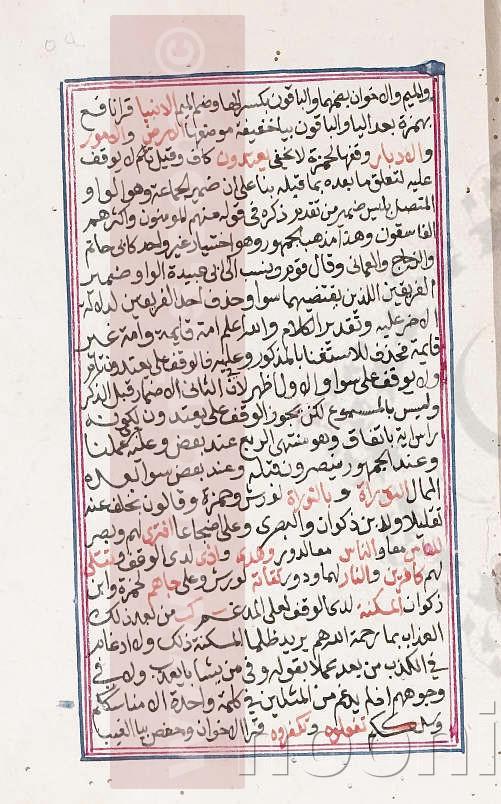 والميم والاخوان بضمهما والباقون بكسر الهاء وضم الميم الانبياء قرا نافع
بهمزة بعد الياء والباقون بياء خفيفة موضعها الارض والامور
والادبار وقفها لحمزة لا يخفى يعتدون كاف وقيل تام لا يوقف
عليه لتعلق ما بعده بما قبله بناء على ان ضمير الجماعة وهو الواو
المتصل بليس ضمير من تقدم ذكره في قوله منهم المومنون واكثرهم
الفاسقون وهذا مذهب الجمهور وهو اختيار غير واحد كابي حاتم
والزجاج والعماني وقال قوم وينسب الى ابي عبيدة الواو ضمير
الفريقين اللذين يقتضيهما سواء وحذف احد الفريقين لدلالة
الاخر عليه وتقدير الكلام والله اعلم امة قايمة وامة غير
قايمة فحذف للاستغناء بالمذكور وعليه فالوقف على يعتدون تام
ولا يوقف على سواء والاول اظهر لان الثاني الاضمار قبل الذكر
وليس بالمسموع لكن يجوز الوقف على يعتدون لكونه
راس اية باتفاق وهو منتهى الربع عند بعض وعليه عملنا
وعند الجمهور ينصرون قبله وعند بعض سواء بعده
الممال التوراة وبالتوراة لورش وحمزة وقالون بخلف عنه
تقليلا ولابن ذكوان والبصري وعلي اضجاعا افترى لهم وبصر
للناس معا والناس معا لدور وهدى واذى لدى الوقف وتتلى
لهم كافرين والنار لهما ودور تقاته لورش وعلي جاءهم لحمزة وابن
ذكوان المسكنة لدى الوقف لعلي المدغم ك من بعد ذلك
العذاب بما رحمة الله هم يريد ظلما المسكنة ذلك ولا ادغام
في الكذب من بعد عملا بقوله وفي من يشاء با يعذب ولا في
وجوههم اذ لم يدغم من المثلين في كلمة واحدة الا مناسككم
وسلككم تفعلوا وتكفروه قرا الاخوان وحفص بياء الغيب
noorli